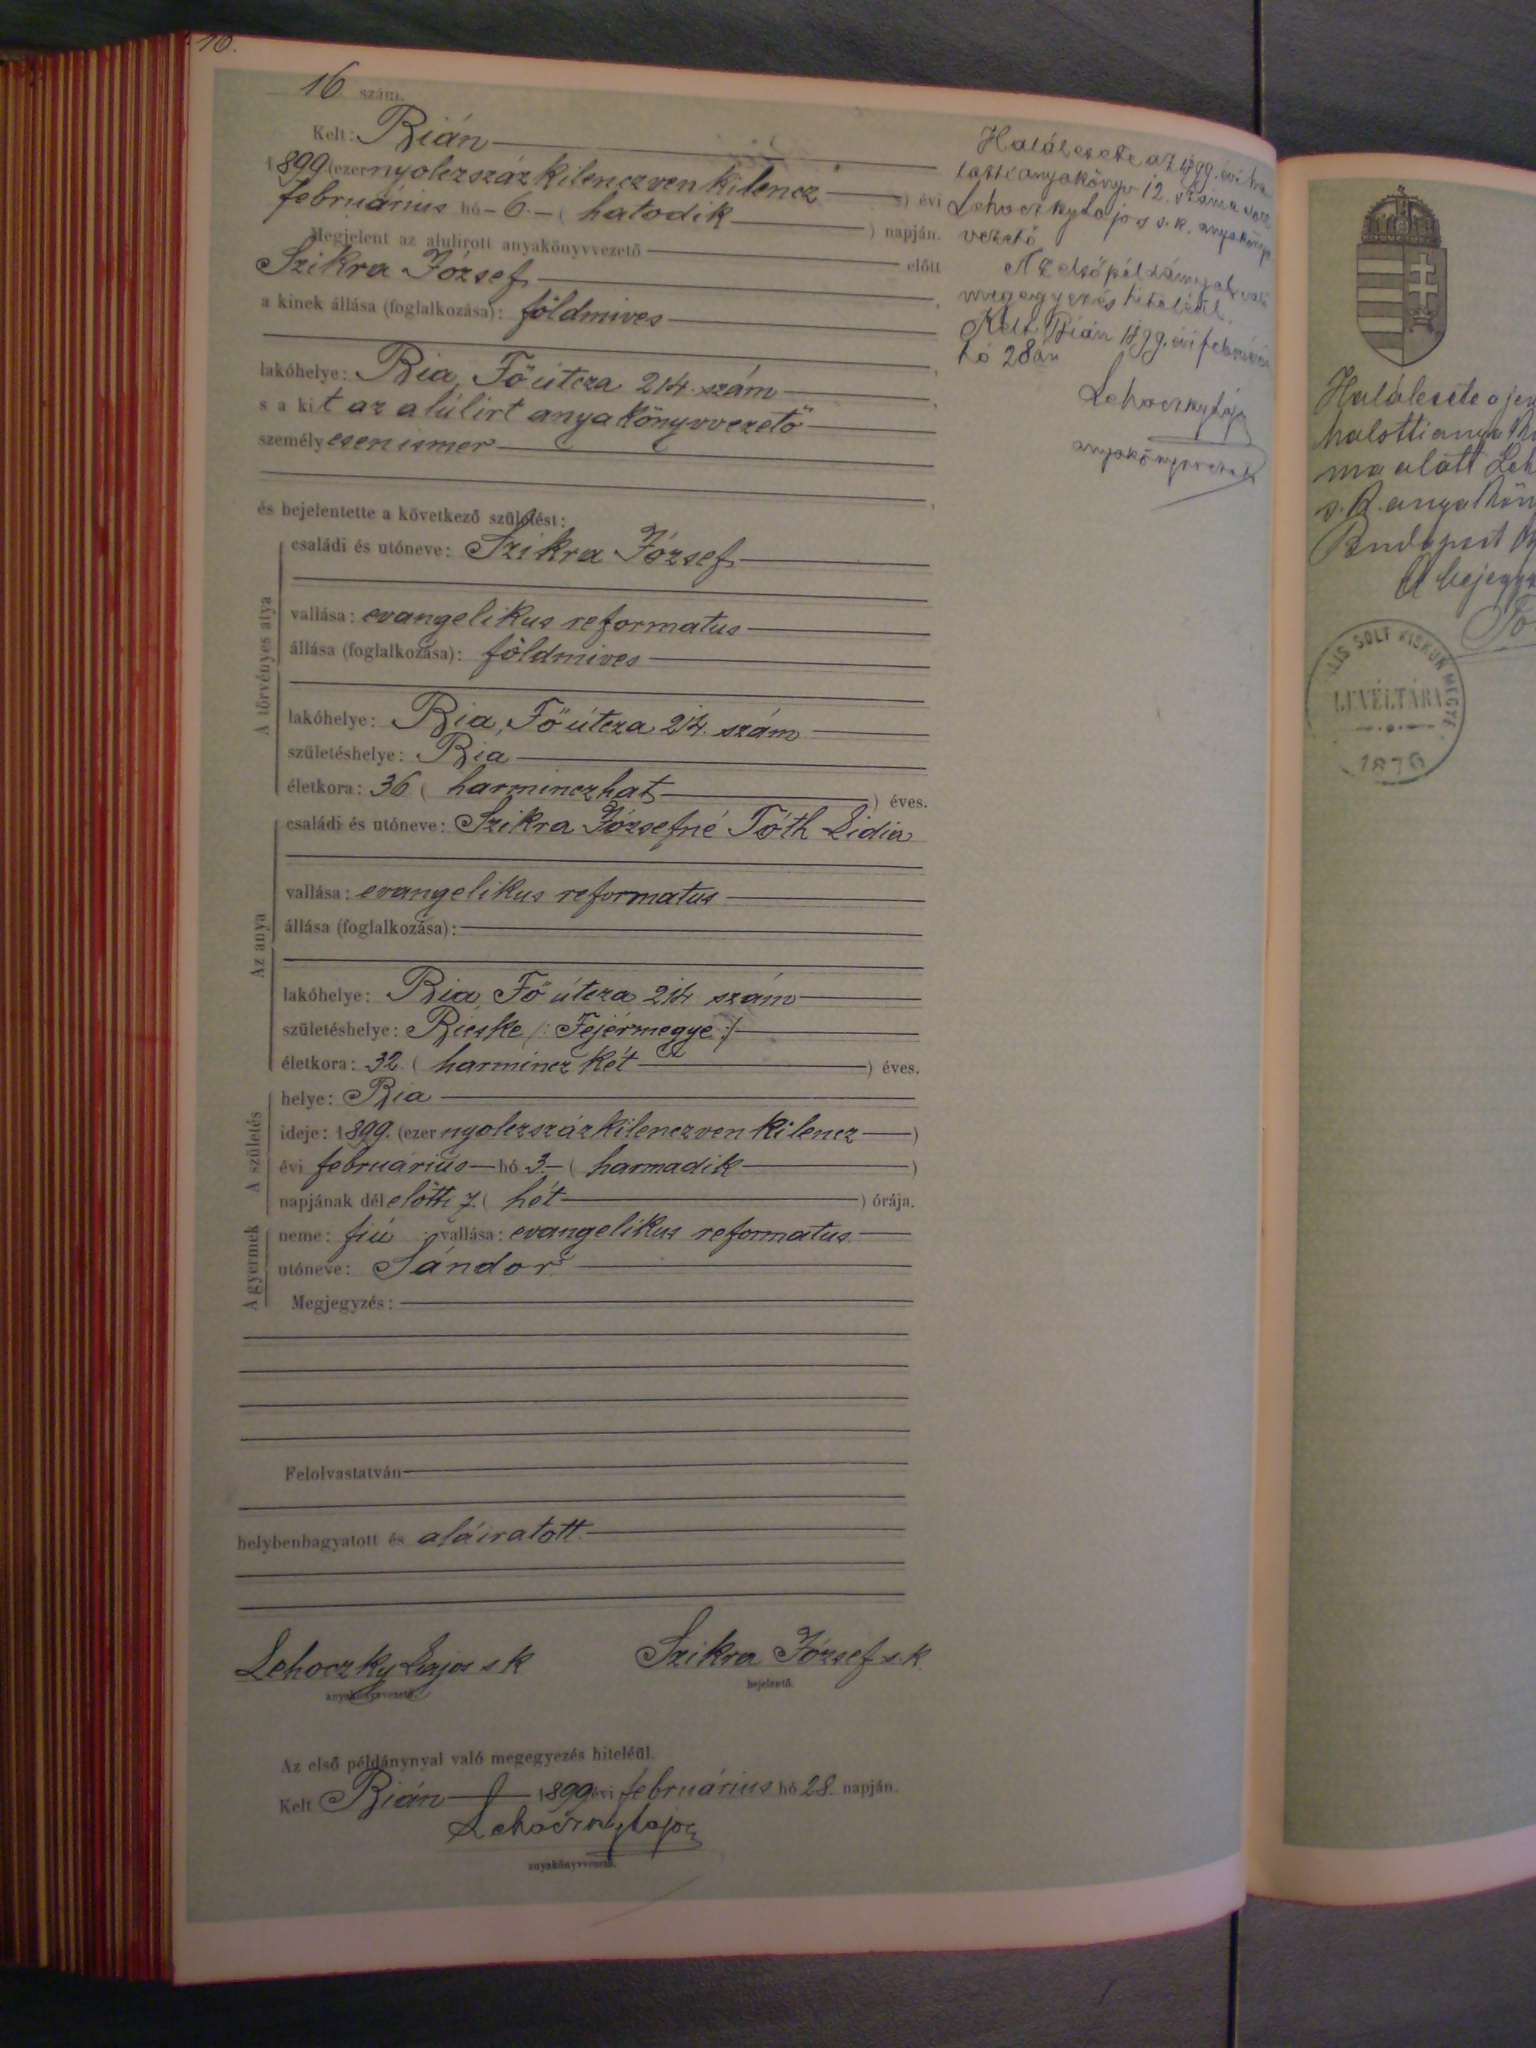 16.
16 szám.
Kelt: Bián
1899. (ezernyolczszázkilenczvenkilencz ) évi
februárius hó - 6. - ( hatodik ) napján.
Megjelent az alulirott anyakönyvvezető előtt
Szikra József,
a kinek állása (foglalkozása): földmives
lakóhelye: Bia, Főútcza 214. szám
s a kit az alúlirt anyakönyvvezető
személyesen ismer
és bejelentette a következő születést:
A törvényes atya
családi és utóneve: Szikra József
vallása: evangelikus reformatus
állása (foglalkozása): földmives
lakóhelye: Bia, Főútcza 214. szám
születéshelye: Bia
életkora: 36 ( harminczhat ) éves.
Az anya
családi és utóneve: Szikra Józsefné Tóth Lidia
vallása: evangelikus reformatus
állása (foglalkozása):
lakóhelye: Bia Főútcza 214 szám
születéshelye: Bicske /: Fejérmegye :/
életkora: 32 ( harmincz két ) éves.
A születés
helye: Bia
ideje: 1899. (ezernyolczszázkilenczvenkilencz )
évi februárius hó 3. - ( harmadik )
napjának délelőtti 7. ( hét ) órája.
A gyermek
neme: fiú vallása: evangelikus reformatus
utóneve: Sándor
Megjegyzés:
Felolvastatván
helybenhagyatott és aláiratott
Lehoczky Lajos s k
anyakönyvvezető.
Szikra József s. k.
bejelentő.
Az első példánynyal való megegyezés hiteléűl.
Kelt Bián 1899 évi februárius hó 28. napján.
Lehoczky Lajos
anyakönyvvezető.
Halálesete az 1899. évi ha-
lotti anyakönyv 12. száma
Lehoczky Lajos s. k. anyakönyv
vezető
Az első példánynyal való
megegyezés hiteléűl.
Kelt Bián 1899. évi februárius
hó 28án
Lehoczky Lajos
anyakönyvvezető
Halálesete a
halotti
ma alatt Leh
s. k. anyakön
Budapest
A bejegyz
SOLT KISKUN MEGYE
LEVÉLTÁRA
1876